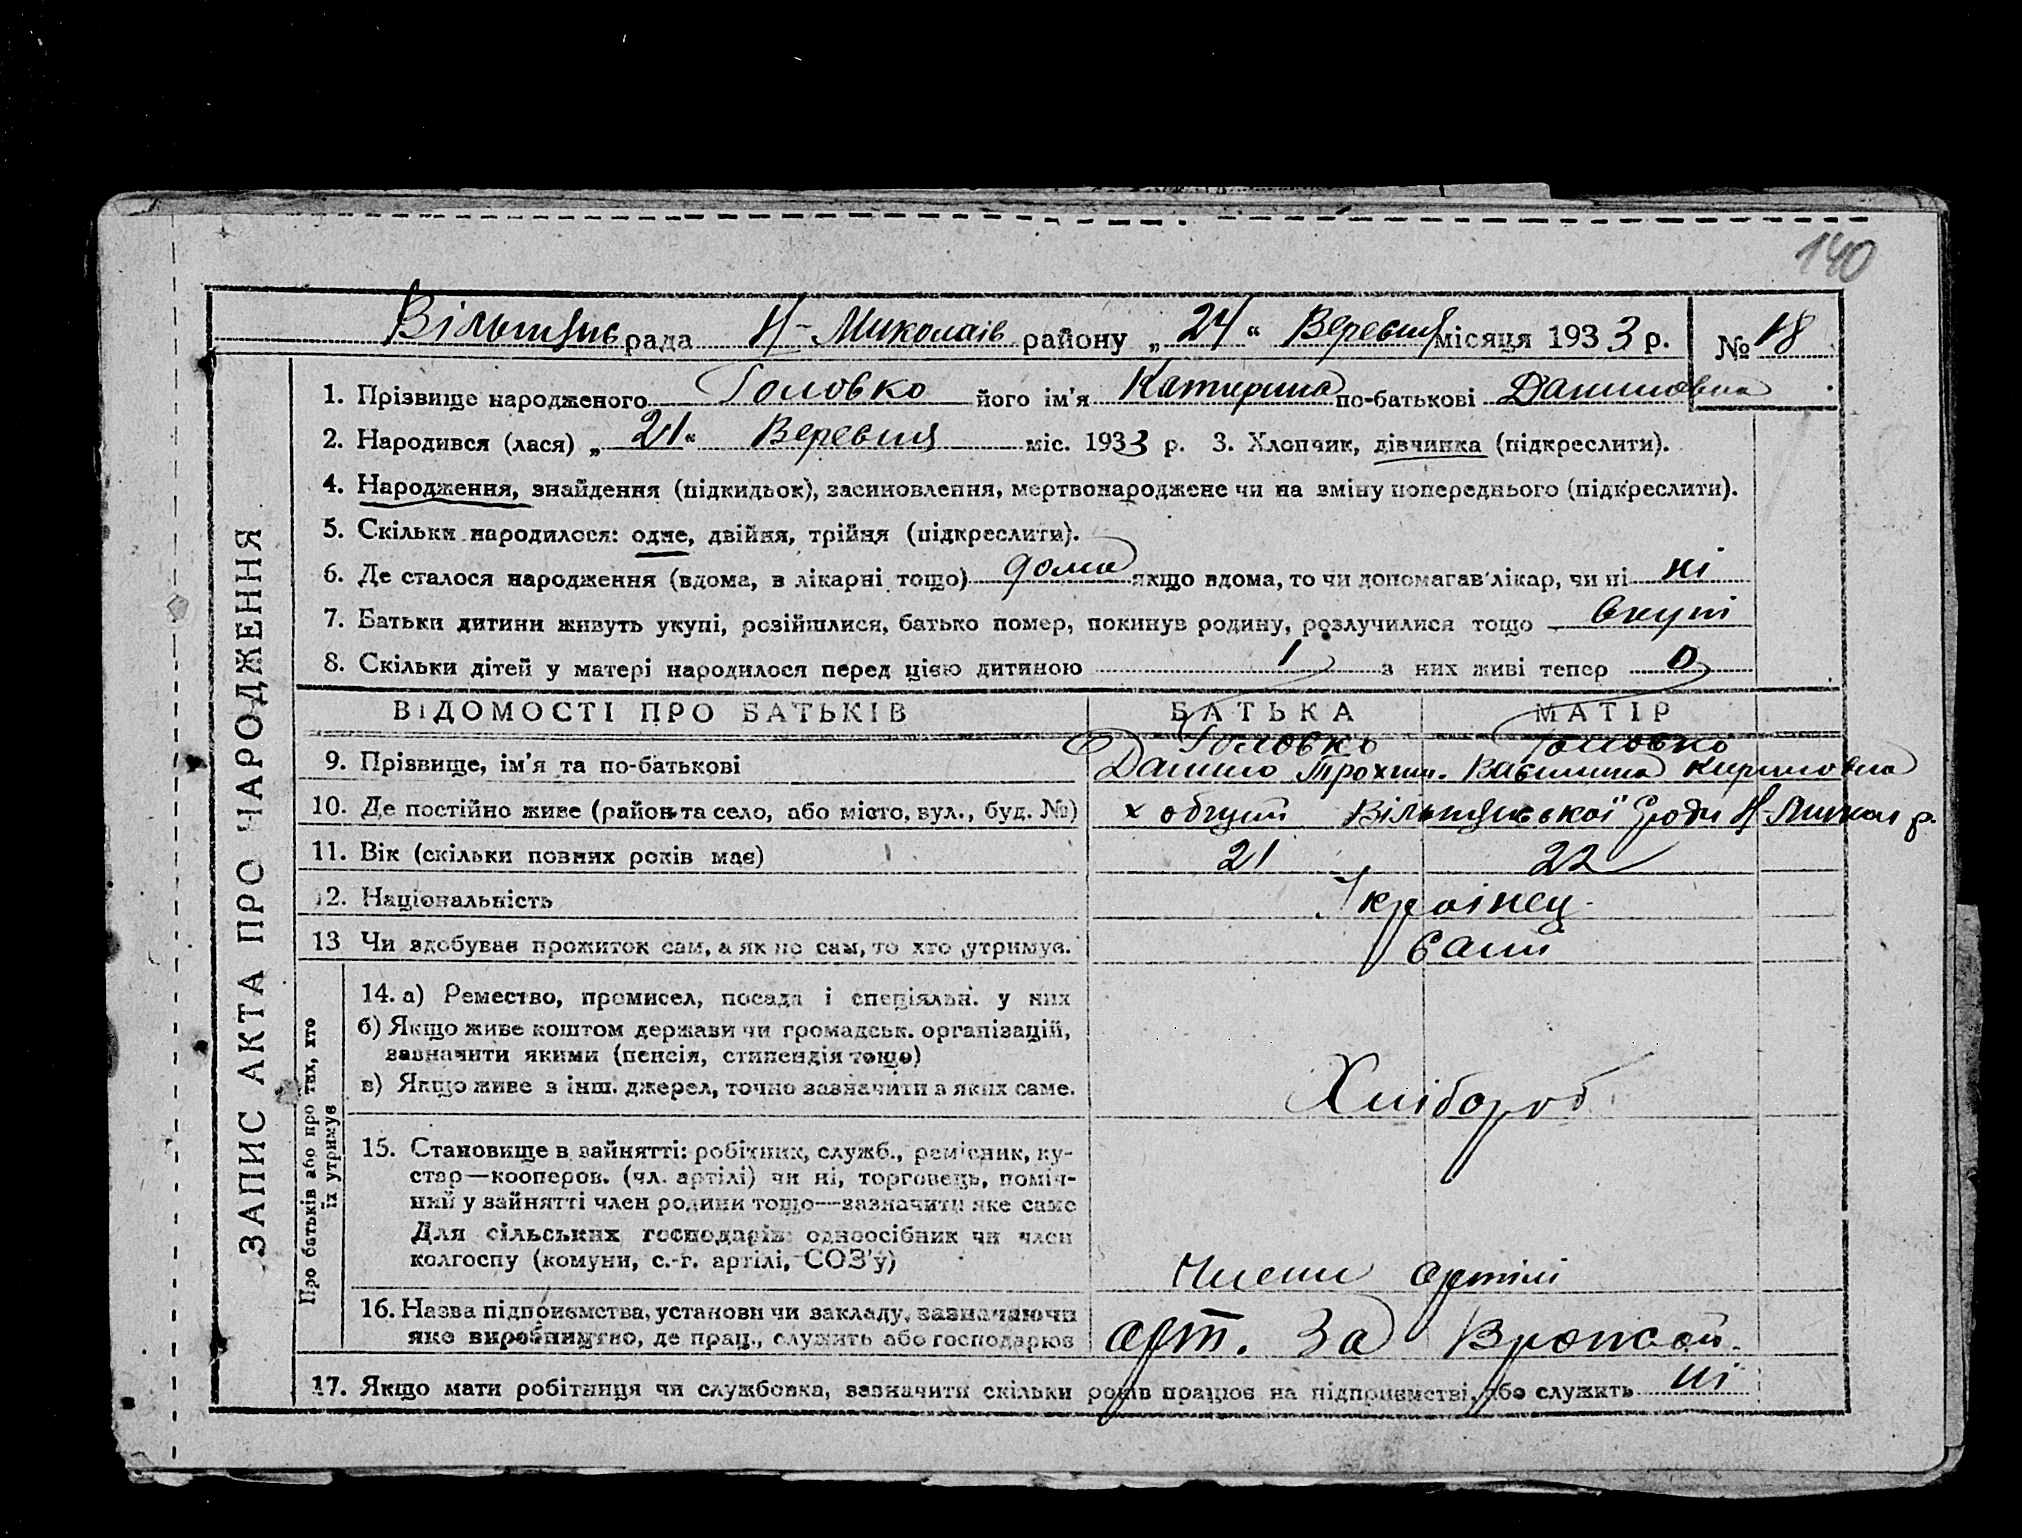 140
Вільшинс рада Н-Миколаїв району „24“ Вересня місяця 1933 р. № 18
ЗАПИС АКТА ПРО НАРОДЖЕННЯ
1. Прізвище народженого Головко його ім'я Катирина по-батькові Даниловна
2. Народився (лася) „21“ Вересня міс. 1933 р. 3. Хлопчик, дівчинка (підкреслити).
4. Народження, знайдення (підкидьок), засиновлення, мертвонароджене чи на зміну попереднього (підкреслити).
5. Скільки народилося: одне, двійня, трійня (підкреслити).
6. Де сталося народження (вдома, в лікарні тощо) дома якщо вдома, то чи допомагав лікар, чи ні ні
7. Батьки дитини живуть укупі, розійшлися, батько помер, покинув родину, розлучилися тощо вкупі
8. Скільки дітей у матері народилося перед цією дитиною 1 з них живі тепер 0
ВІДОМОСТІ ПРО БАТЬКІВ БАТЬКА МАТІР
Головко Головко
9. Прізвище, ім'я та по-батькові Данило Трохим. Василина Кириловна
10. Де постійно живе (район та село, або місто, вул., буд. №) х Вільшинської Ради Н-Микол р.
11. Вік (скільки повних років має) 21 22
12. Національність Українец
13 Чи здобуває прожиток сам, а як не сам, то хто утримує. Самі
Про батьків або про тих, хто
їх утримує
14. а) Ремество, промисел, посада і спеціяльн. у них
б) Якщо живе коштом держави чи громадськ. організацій,
зазначити якими (пенсія, стипендія тощо)
в) Якщо живе з інш. джерел, точно зазначити з яких саме. Хлібороб
15. Становище в зайнятті: робітник, служб., ремісник, ку-
стар—кооперов. (чл. артілі) чи ні, торговець, поміч-
ний у зайнятті член родини тощо—зазначити яке саме
Для сільських господарів: одноосібник чи член
колгоспу (комуни, с.-г. артілі, СОЗ'у) Члени артілі
16. Назва підприємства, установи чи закладу, зазначаючи
яке виробництво, де прац., служить або господарює арт. За Врожай.
17. Якщо мати робітниця чи службовка, зазначити скільки років працює на підприємстві, або служить ні